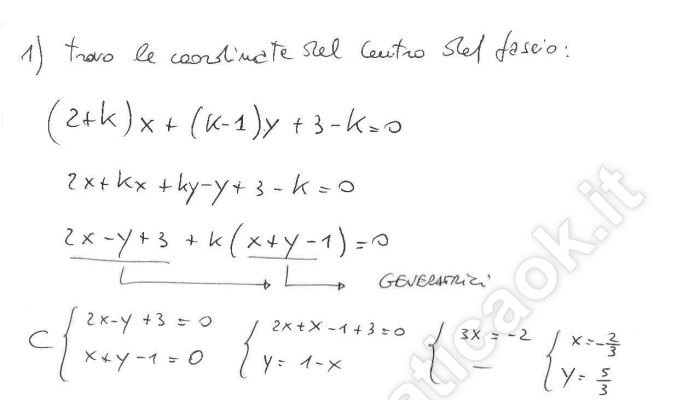 1) trovo le coordinate del centro del fascio:
(2+k)x + (k-1)y + 3-k=0
2x+kx+ky-y+3-k=0
2x-y+3 + k(x+y-1)=0
GENERATRICI
C { 2x-y+3=0 { 2x+x-1+3=0 { 3x=-2 { x=-2/3
x+y-1=0 y=1-x — y=5/3
aticaok.it